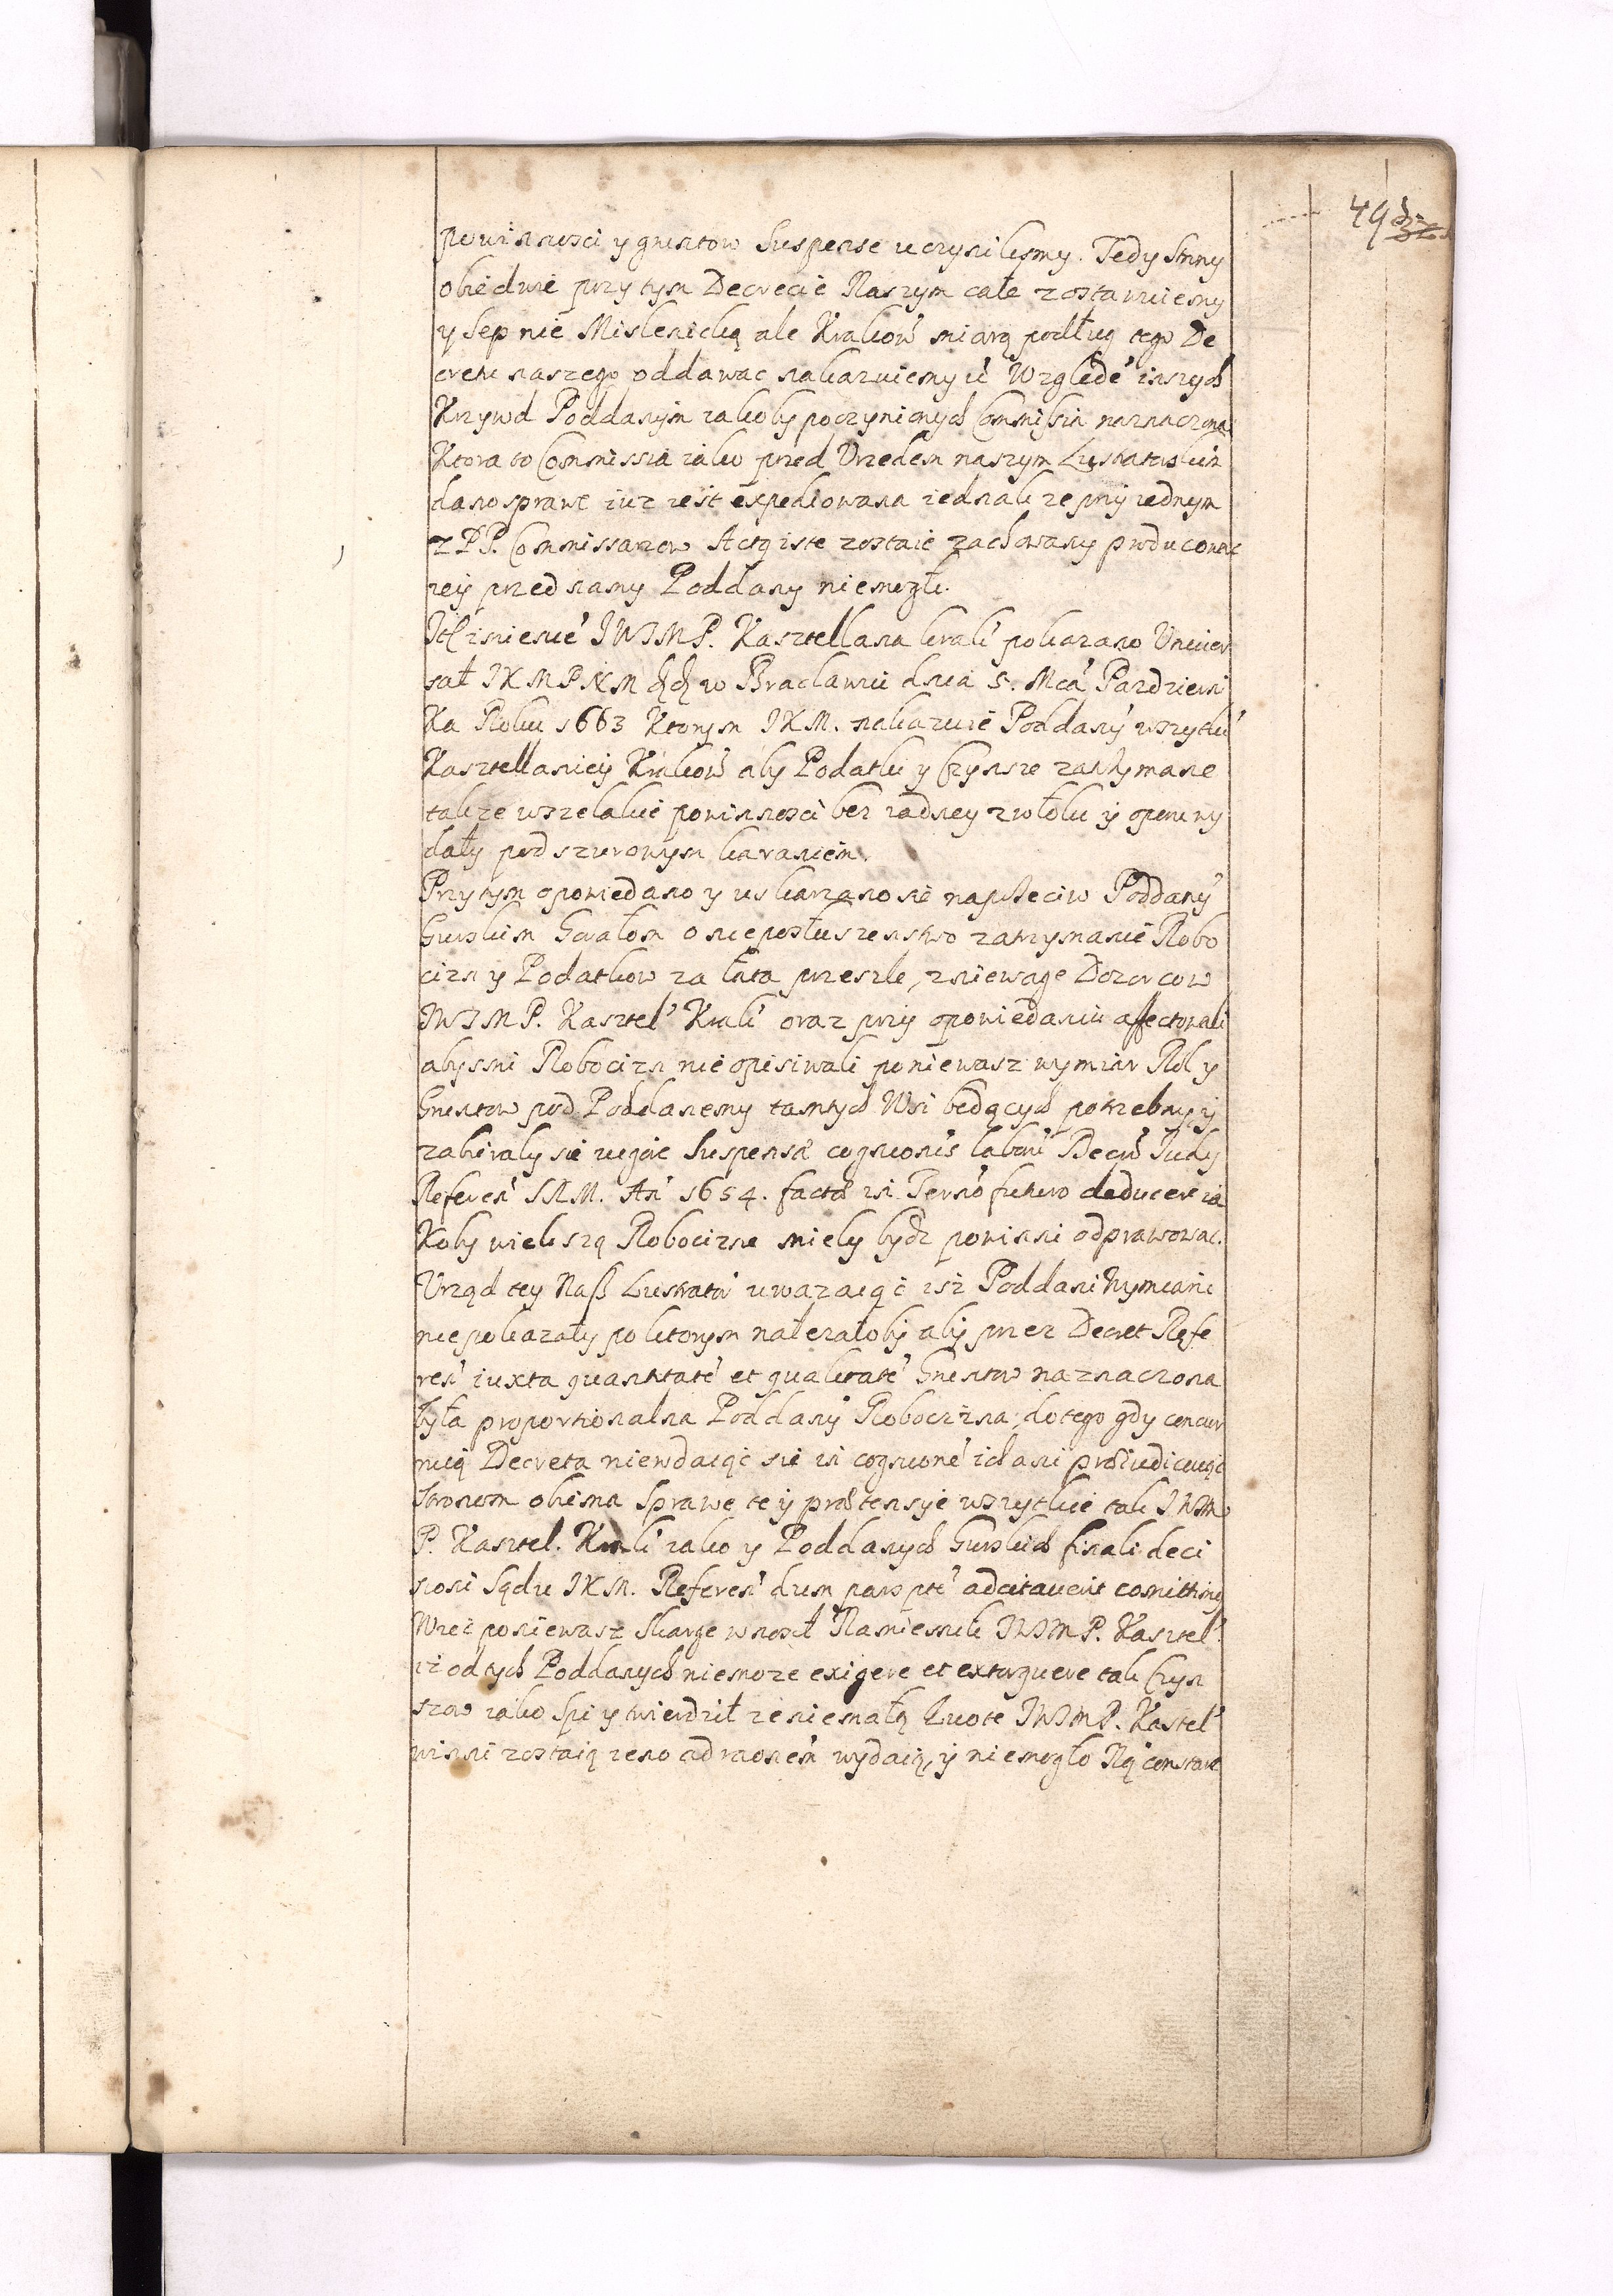 49 32
powinnosci y gruntow Suspense uczynilismy. Tedy Strony
obiedwie przy tym Decrecie Naszym całe zostawuiemy
y Sep nie Mislenicką ale Krakow miarą podług tego De
cretu naszego oddawac nakazuiemy
Krzywd Poddanym iakoby poczynionych Commissia naznaczona
Ktora to Commissia iako przed Urzedem naszym
dano sprawe iuz iest expediowana iednak ze przy iednym
z PP. Commissarzow Acta iste zostaie zachowany producowac
iey przed namy Poddany niemogli.
Itt imieniem JWJMP. Kasztellana krak pokazano Uniwer
sał JKMPNM w Braclawiu dnia 5. Mca Pazdzierni
Ka Roku 1663 Ktorym JKM. nakazuie Poddany wszytki
Kasztellaniey Krakow aby Podatki y Czynsze zatrzymane
takze wszelakie powinnosci bez zadney zwłoki y
dały pod surowym karaniem.
Przytym opowiedano y uskarzano sie naprzeciw Poddany
Gurskim Gorałom o nieposłuszenstwo zatrzymanie Robo
cizn y Podatkow za lata przeszłe, zniewage Dozorcow
JWJMP. Kasztel Krak oraz przy opowiedaniu affectowali
abysmi Robocizn nie opisiwali poniewasz wymiar Rol y
Gruntow pod Poddanemy tamtych Wsi będących potrzebny y
zabierały sie Suspensa
Referen SRM. An 1654. facta in Termo futuro deducere ia
Koby wiekszą Robocizne miely bydz powinni odprawowac.
Urząd tey Nass Lustratii uwazaiąc isz Poddani Wymiaru
niepokazały po ktorym nalezałoby aby przez Decret Refe
ren iuxta quantitate et qualitate Gruntow naznaczona
była proportionalna Poddany Robocizna, do tego gdy concur
ruią Decreta niewdaiąc sie in cognitione ich ani praeiudicuiąc
Stronom obiema Sprawe te y praetensyie wszytkie tak JWM
P. Kasztel. Krak iako y Poddanych Gurskich finali deci
sioni Sądu JKM. Referen dum pars pte adcitaverit comittimy
Wiec poniewasz skarge wnosił Namiesnik JWJMP. Kasztel
iz od tych Poddanych niemoze exigere et extorquere tak Czyn
szow iako Spi y twierdził ze niemałą kwote JWJMP. Kastel
winni zostaią wydaią, y niemogło Ną constare